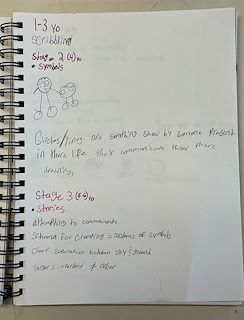 1-3 yo
Scribbling
Stage 2 (4) yo
• Symbols
Circles/lines are somthing show by someone Present
in there life they communicate throw there
drawings
Stage 3 yo
• Stories
attempting to communicate
Schema for = Systems of symbols
Clear separation between sky & ground